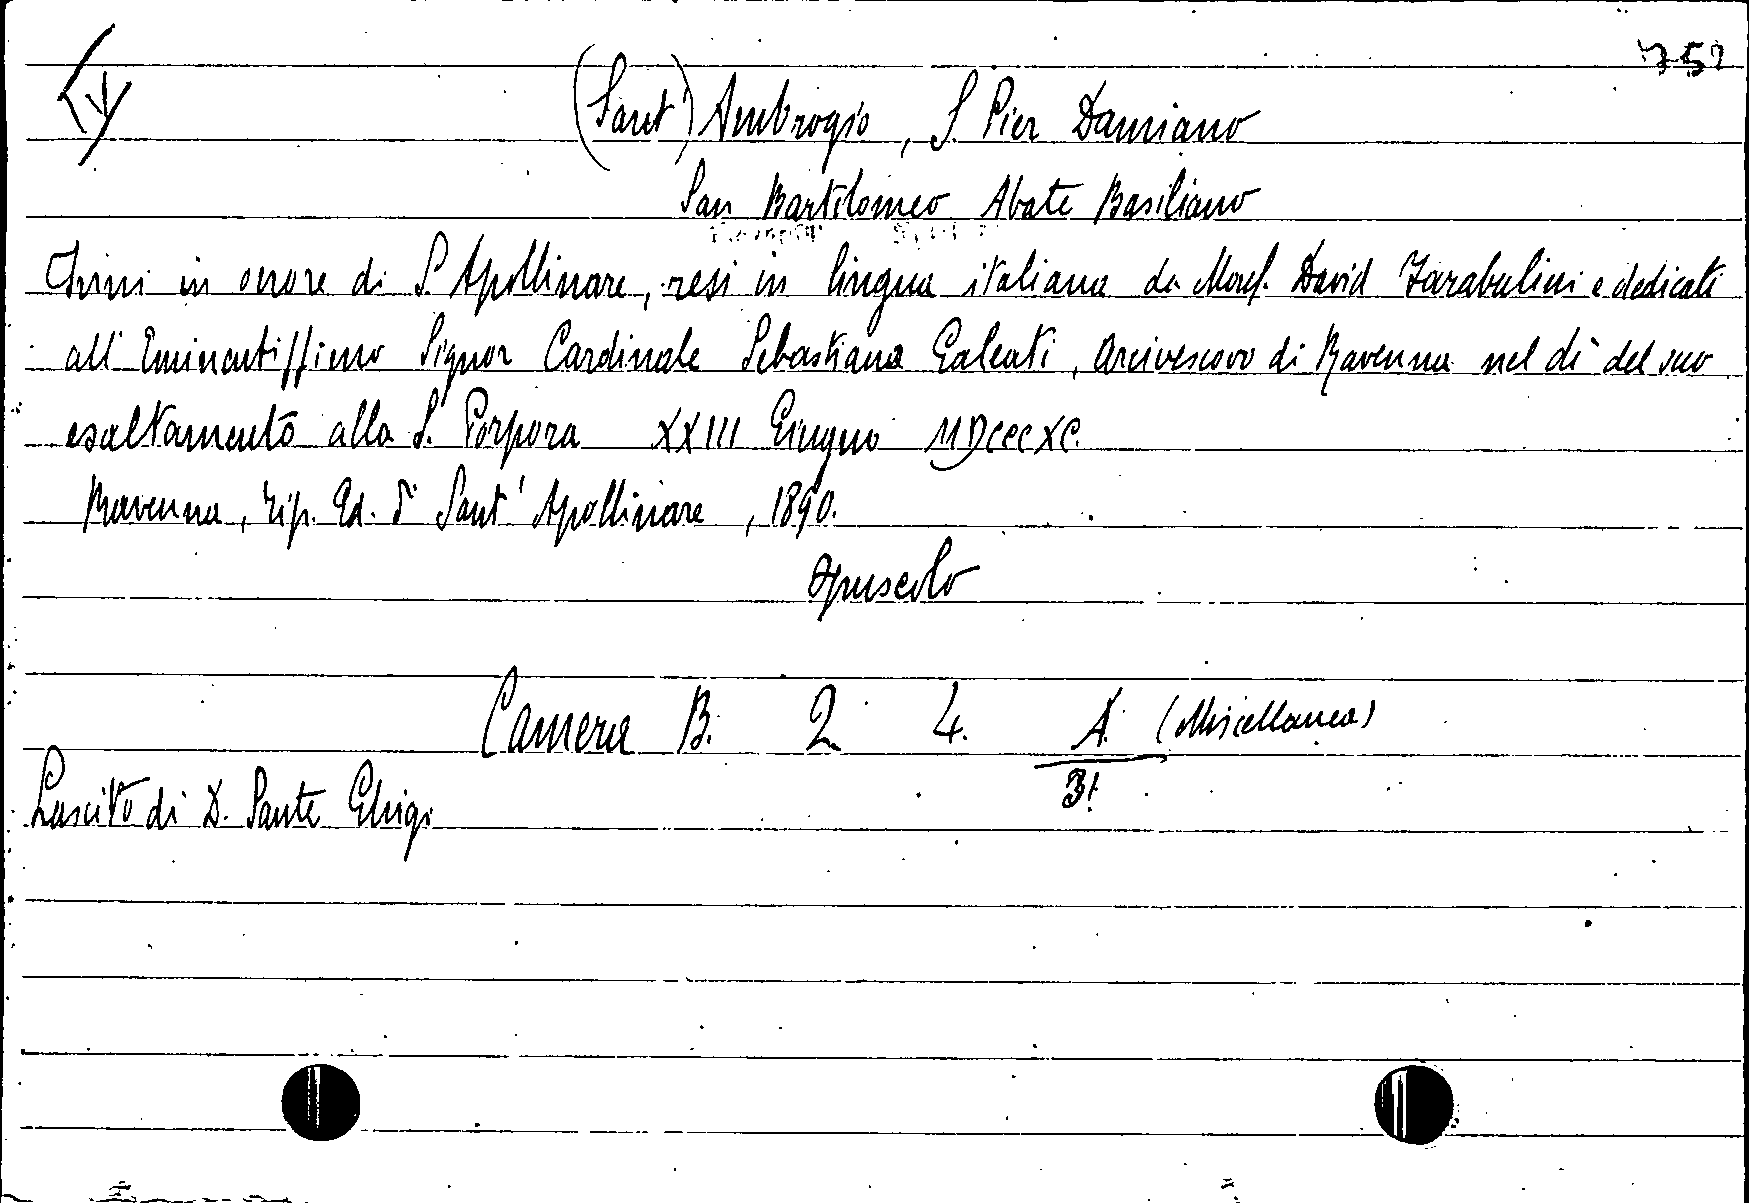 752
(Sant') Ambrogio, S. Pier Damiano
San Bartolomeo Abate Basiliano
Inni in onore di S. Apollinare, resi in lingua italiana da Mons. David Farabulini e dedicati
all'Eminentissimo Signor Cardinale Sebastiano Galeati, Arcivescovo di Ravenna nel dì del suo
esaltamento alla S. Porpora XXIII Giugno MDCCCXC.
Ravenna, Tip. Ed. di Sant' Apollinare, 1890.
Opuscolo
Camera B. 2 4. A. (Miscellanea)
3!
Lascito di D. Sante Ghigi